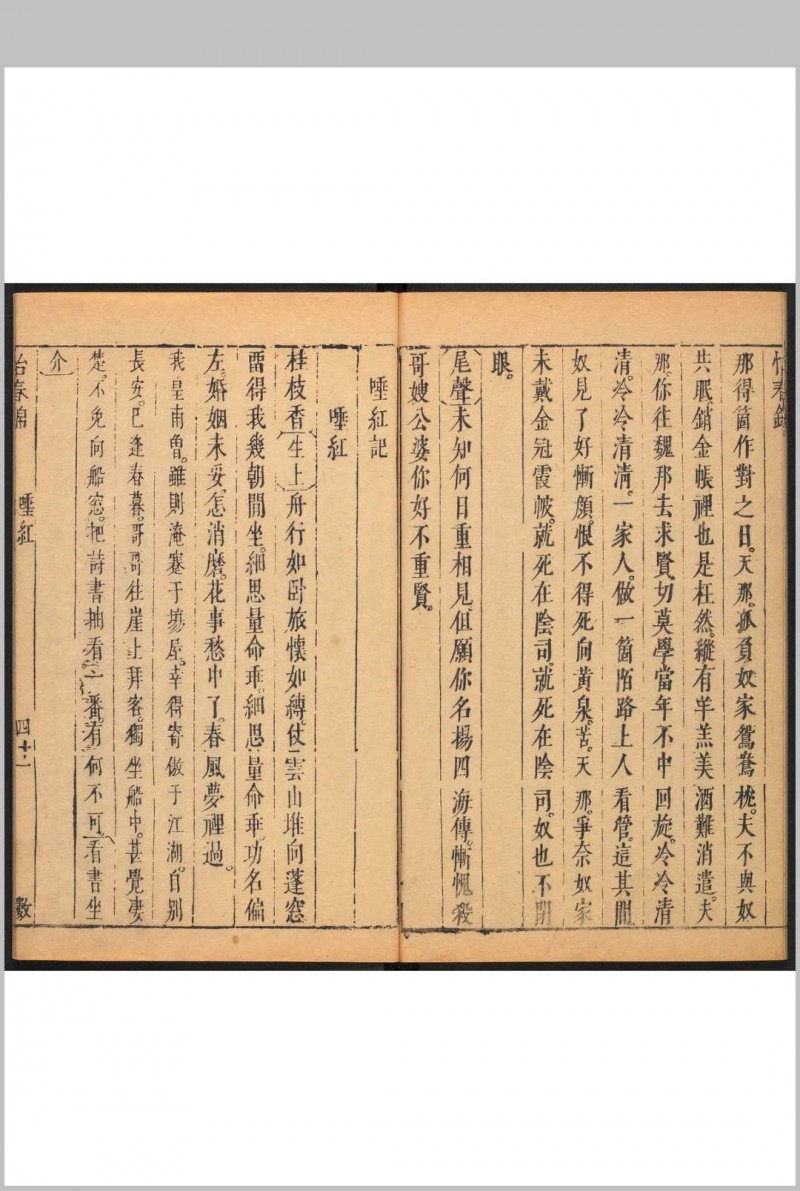 那得箇作對之日。天那。孤負奴家鴛鴦枕。夫不與奴
共眠銷金帳裡也是枉然。縱有羊羔美酒難消遣。夫
那。你往魏邦去求賢。切莫學當年不中回旋。冷冷清
清。冷冷清清。一家人。做一箇陌路上人看管。這其間
奴見了好慚顏。恨不得死向黃泉。苦。天那。爭奈奴家
未戴金冠霞帔。就死在陰司就死在陰司。奴也不閉
眼。
尾聲 未知何日重相見但願你名揚四海傳。慚愧殺
哥嫂公婆你好不重賢。
唾紅記
唾紅
桂枝香 生上 舟行如卧旅懷如縛仗雲山堆向蓬窓
畱得我幾朝閒坐。細思量命乖。細思量命乖功名偏
左。婚姻未妥。怎消磨。花事愁中了。春風夢裡過。
我皇甫曾。雖則淹蹇于塲屋。幸得寄傲于江湖。自別
長安。巳逢春暮。哥哥往崖上拜客。獨坐船中。甚覺凄
楚。不免向船窓。把詩書抽看一番。有何不可。看書坐
介
怡春錦 唾紅 四十 數